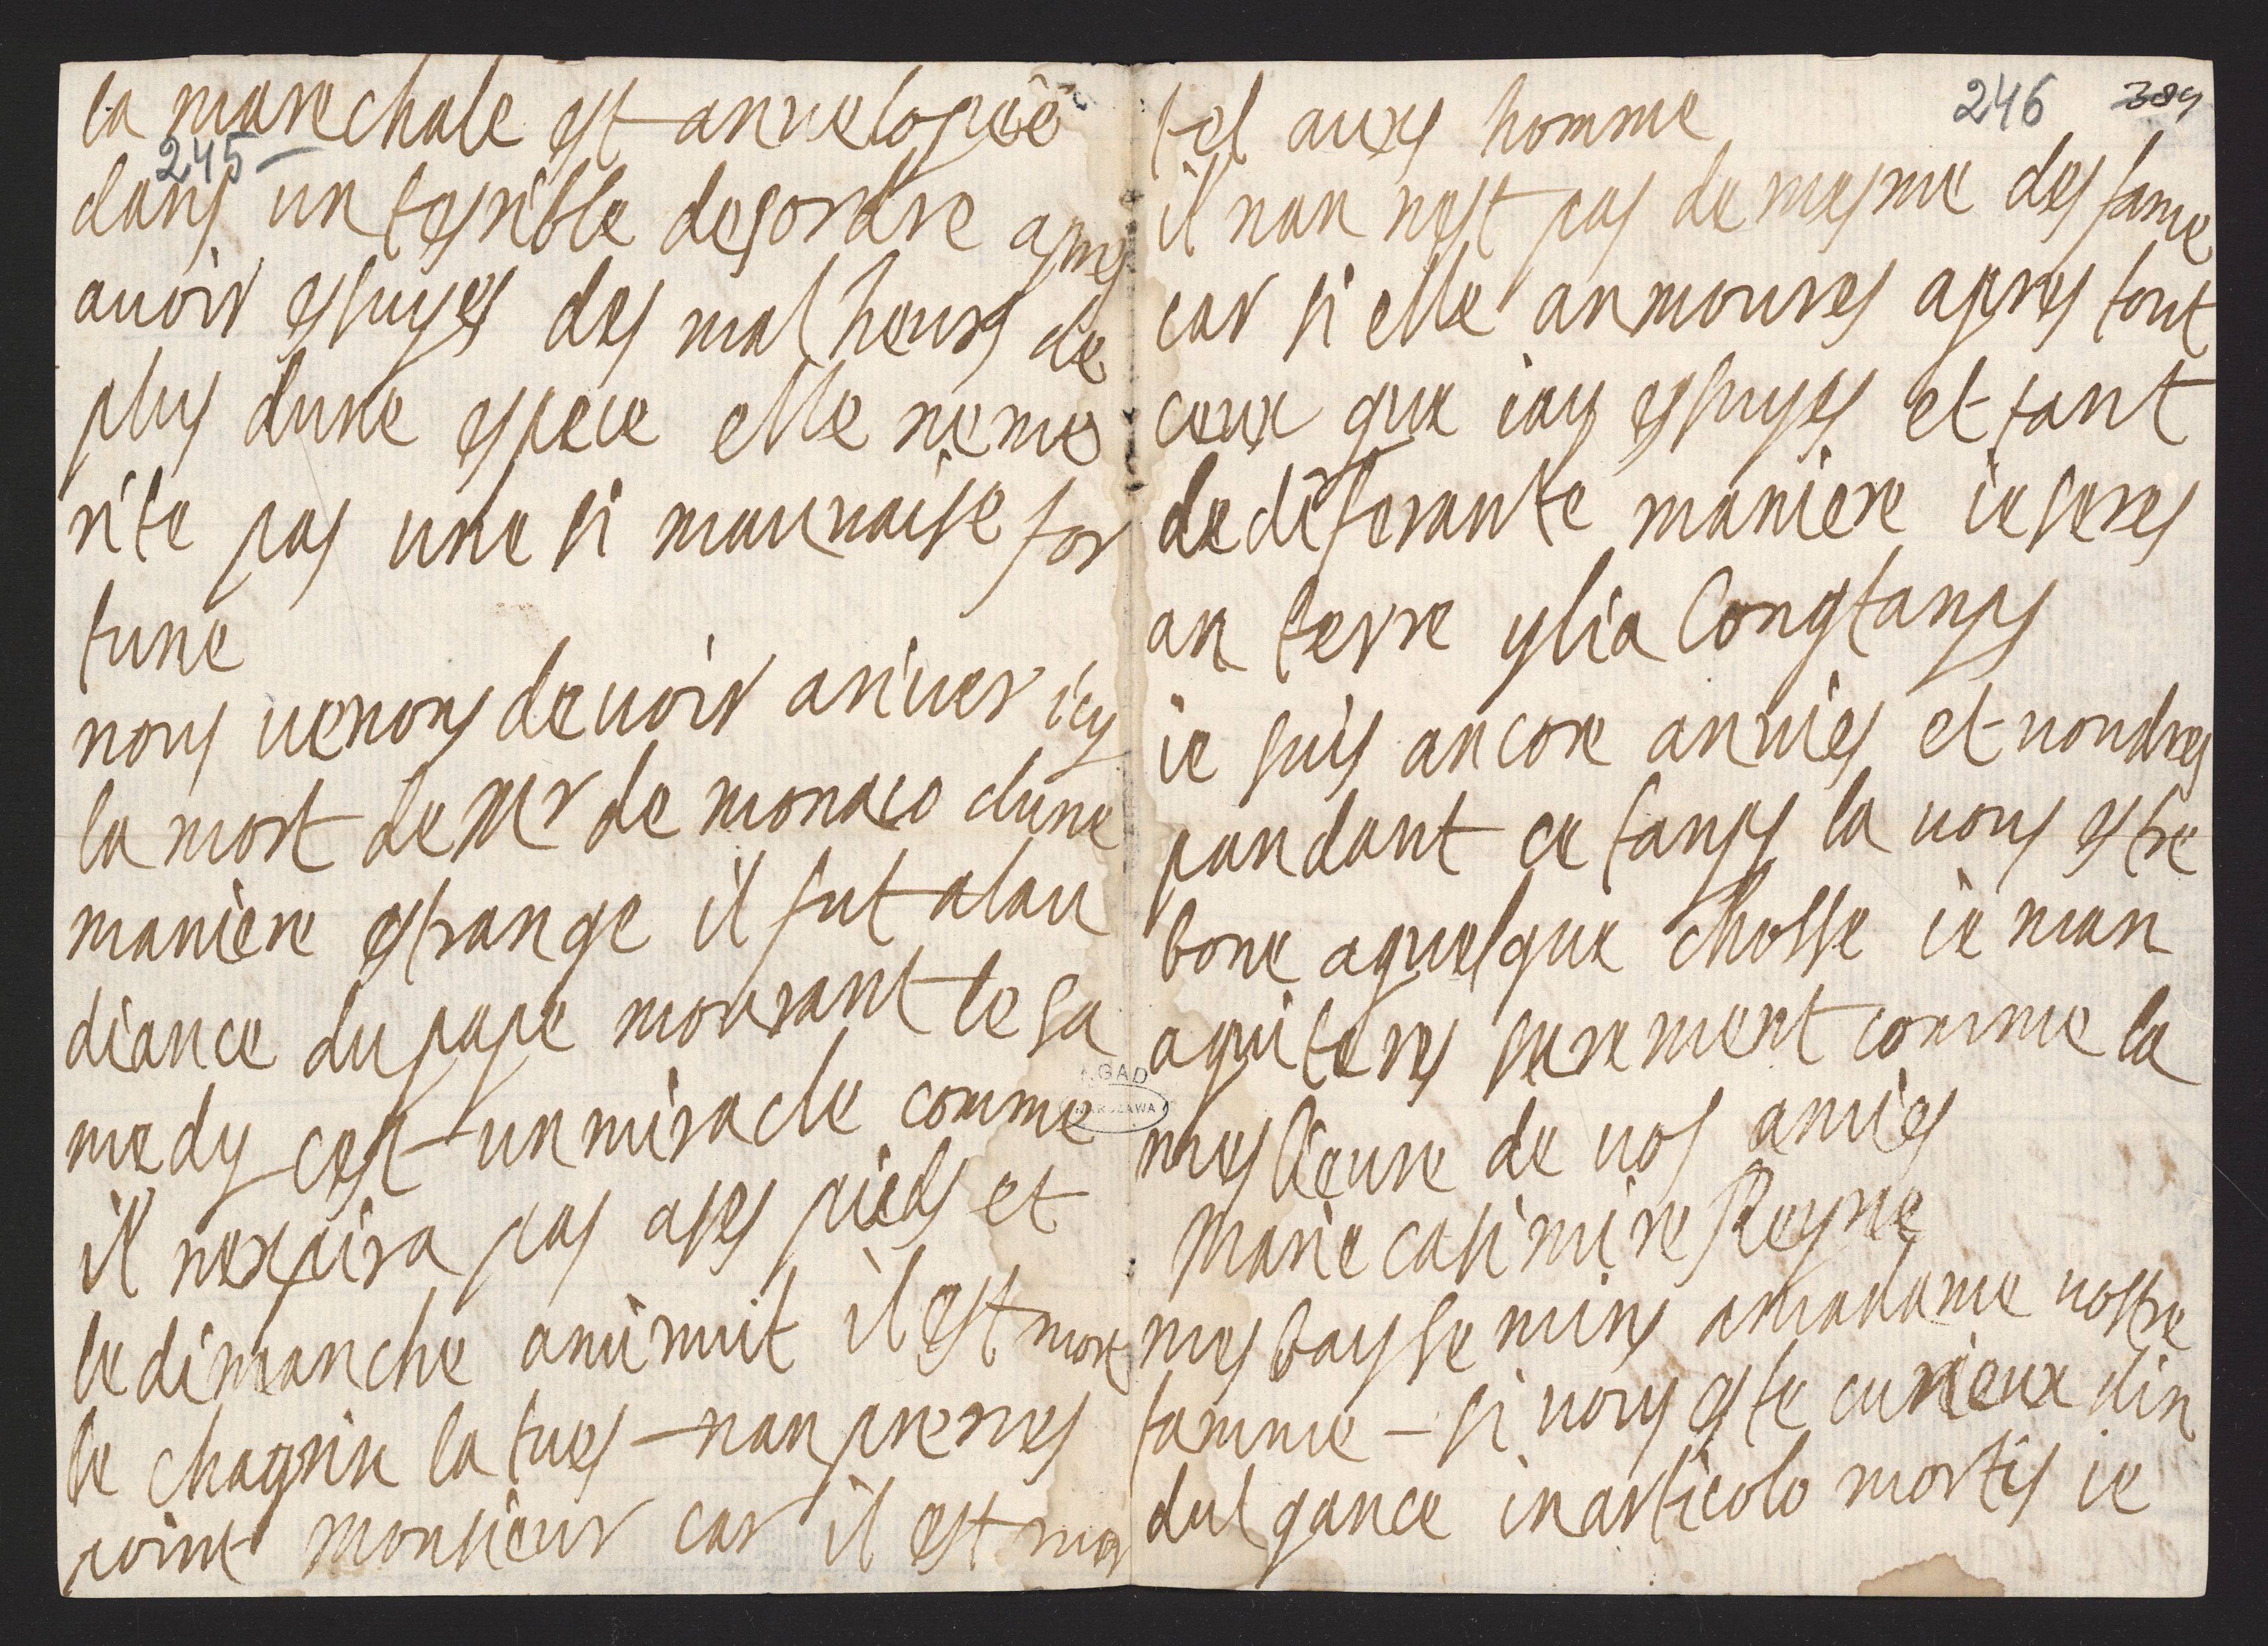 la marechale est anuelopéé
245
dans un tesrible desordre apres
auoir essuyes des mal heurs de
plus dune espece elle neme
rite pas une si mauuaise for
tune
nous uenons deuoir ariuer icy
la mort de Mr de monaco dune
maniere estrange il fut alau
diance du pape mourant lesa
medy cest un miracle comme
il nexpira pas ases pieds et
ledimanche aminuit il est mort
le chagrin la tues nan prenes
point monsieur car il est mor
246 389
tel auxs homme
il nan nest pas de mesme des fame
car si elle anmoures apres tout
ceux que iay essuyes et tant
de diferante maniere ieseres
an terre ylia longtanps
ie suis ancore anuies et uoudres
pandant ce tanps la uous estre
bone aquelque chosse ie man
aquiteres surement comme la
meslieure de uos amies
Marie casimire Reyne
mes baysemins amadame uostre
famme – si uous este curieux din
dulgance inarticolo mortis ie
AGAD
WARSZAWA